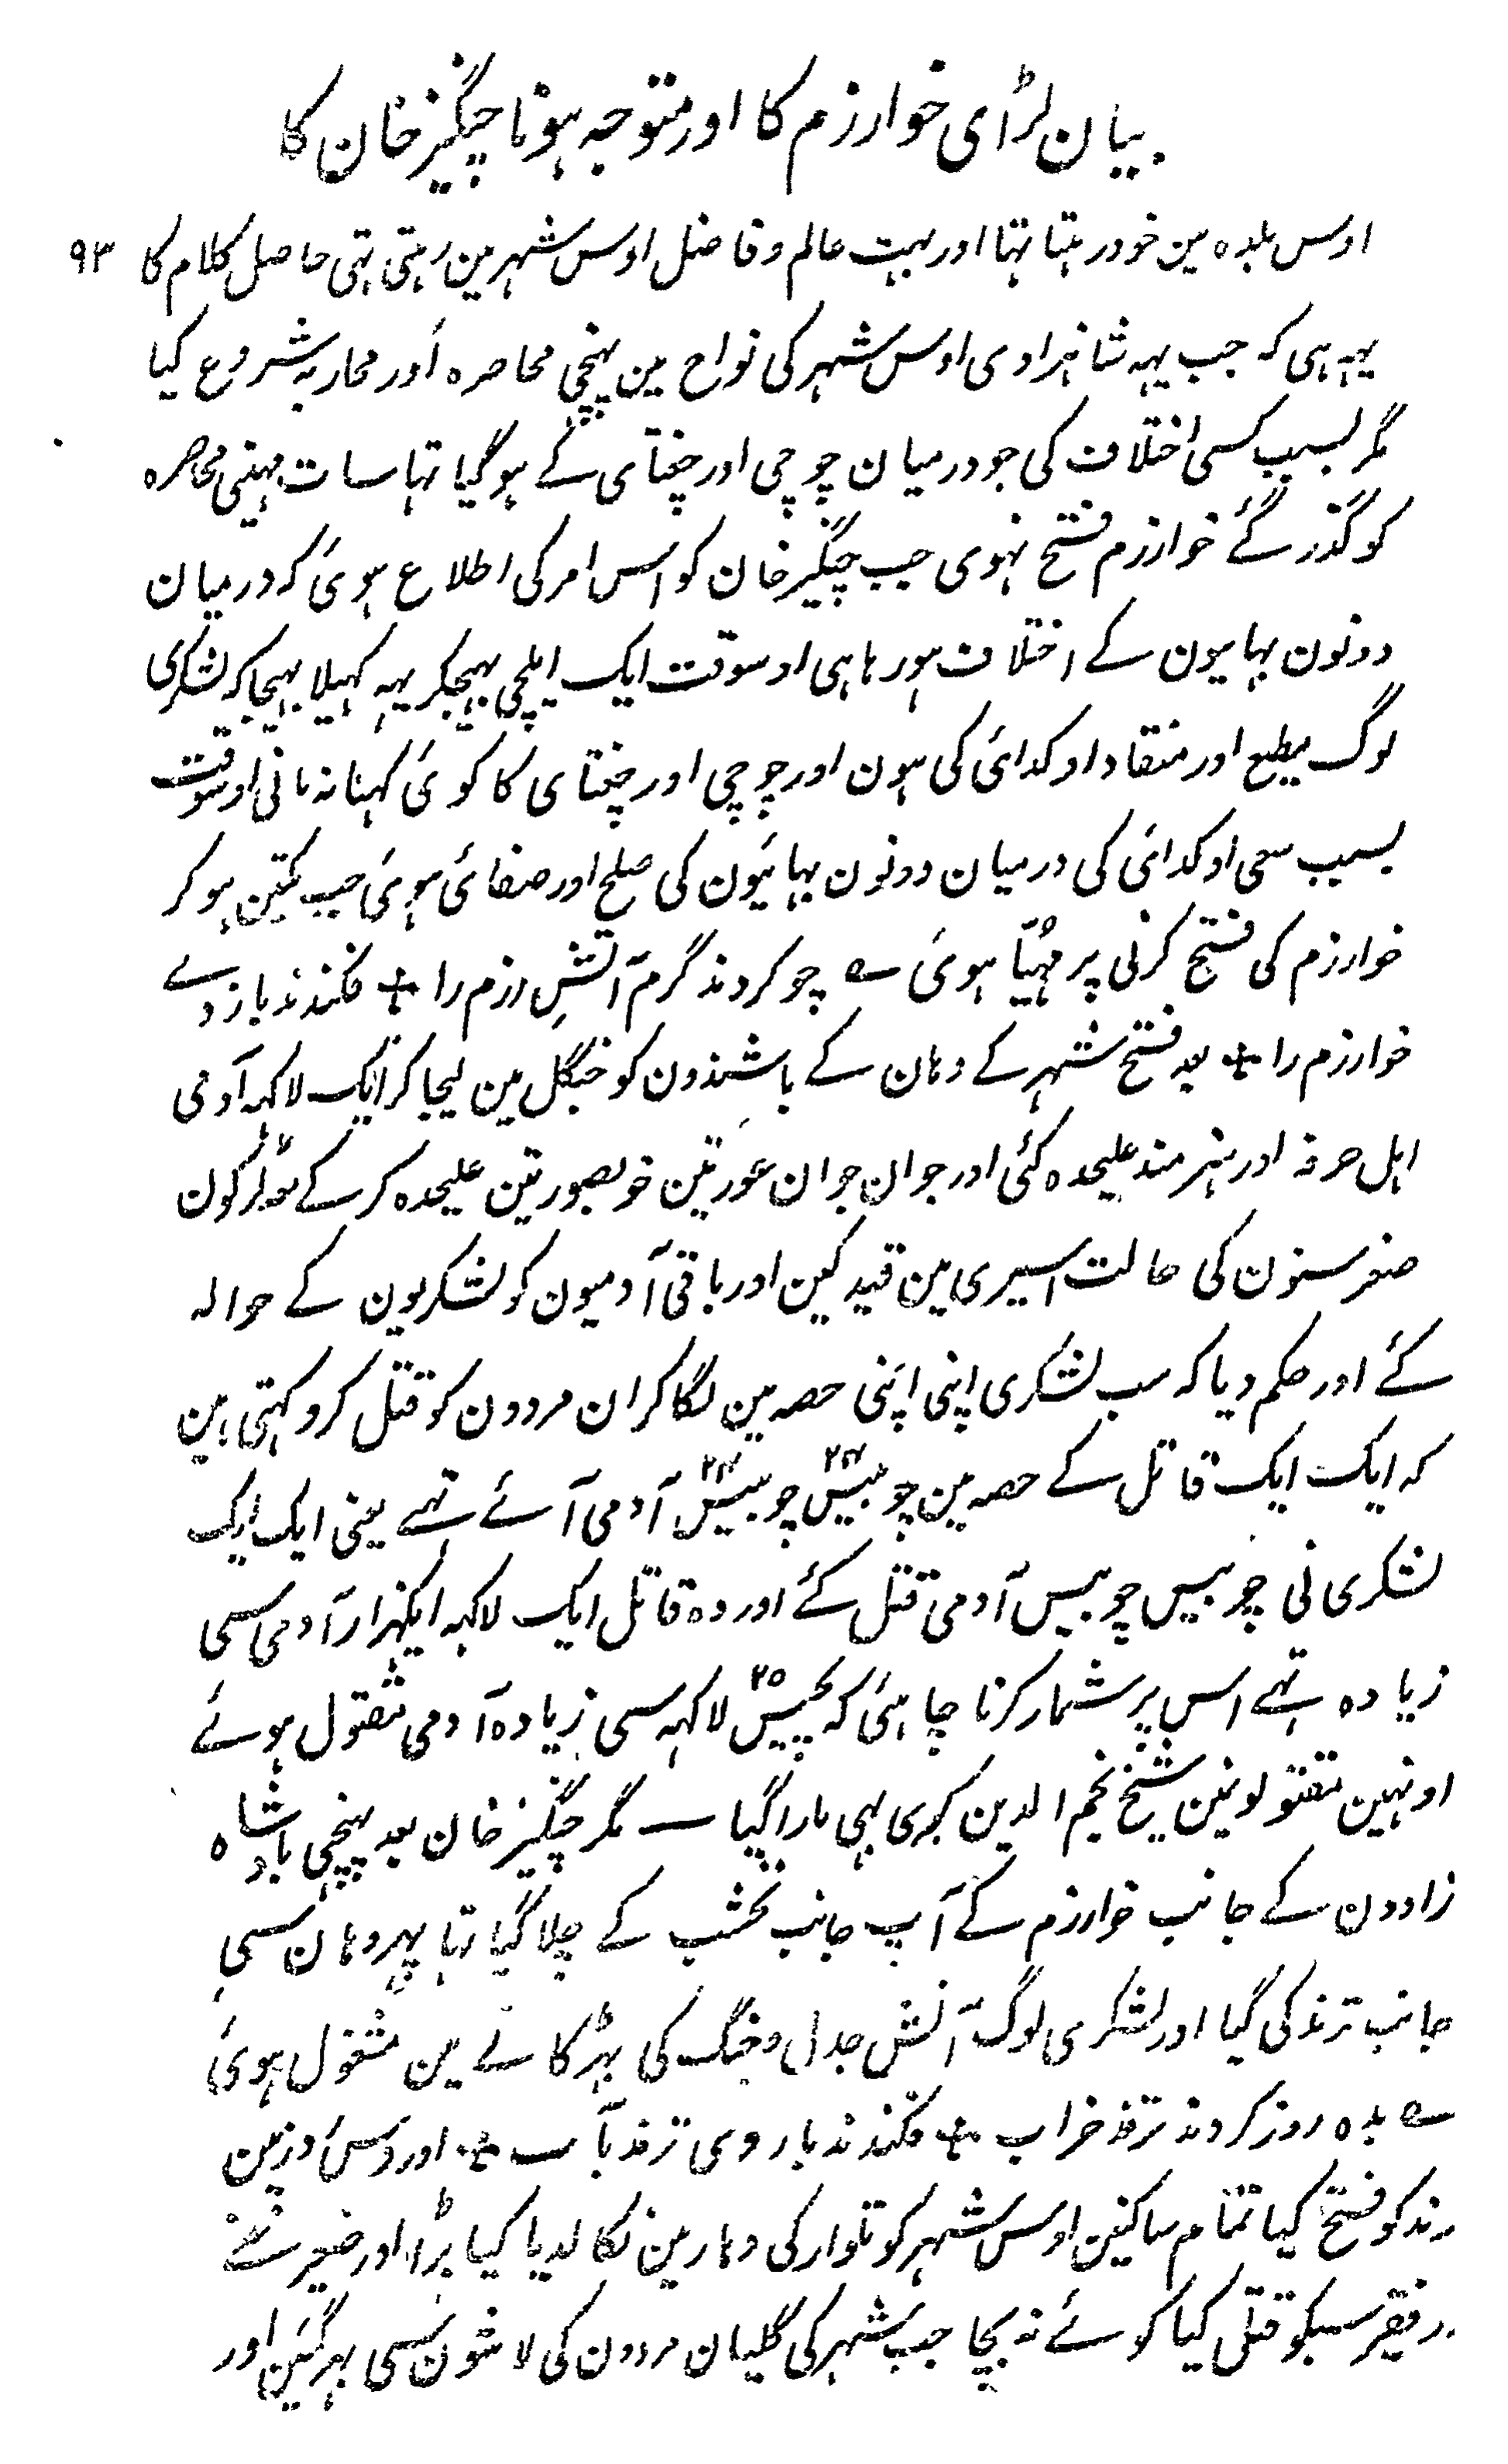 بیان لڑای خوارزم کا اور متوجہ ہونا چنگیز خان کا
اوس بلدہ مین خود رہتا تہا اور بہت عالم و فاضل اوس شہر مین رہتی تہی حاصل کلام کا ۹۳
یہہ ہی کہ جب یہہ شاہزادی اوس شہر کی نواح مین پہنچی محاصرہ اور محاربہ شروع کیا
مگر بسبب کسی اختلاف کی جو درمیان چوچی اور چغتای کے ہو گیا تہا سات مہینی محاصرہ
کو گذر گئے خوارزم فتح نہوی جب چنگیز خان کو اس امر کی اطلاع ہوئ کہ درمیان
دونون بہایون کے اختلاف ہو رہا ہی اوسوقت ایک ایلچی بہیجکر یہہ کہیلا بہیجا کہ لشکری
لوگ مطیع اور منقاد اوکدائ کی ہون اور چوچی اور چغتای کا کوئ کہنا نہ مانی اوسوقت
بسبب سعی اوکدائ کی درمیان دونون بہائیون کی صلح اور صفائ ہوئ جب یکتین ہو کر
خوارزم کی فتح کرنی پر مہیّا ہوئ ؎ چو کردند گرم آتشِ رزم را ؛ فکندند بازوے
خوارزم را ؛ بعد فتح شہر کے وہان کے باشندون کو جنگل مین لیجا کر ایک لاکہہ آدمی
اہل حرفہ اور ہنرمند علیحدہ کئی اور جوان جوان عورتین خوبصورتین علیحدہ کر کے معہ لڑکون
صغر سنون کی حالت اسیری مین قید کین اور باقی آدمیون کو لشکریون کے حوالہ
کئے اور حکم دیا کہ سب لشکری اپنی اپنی حصہ مین لگا کر ان مردون کو قتل کرو کہتی ہین
کہ ایک ایک قاتل کے حصہ مین چوبیس ۲۴ چوبیس ۲۴ آدمی آئے تہے یعنی ایک ایک
لشکری نی چوبیس چوبیس آدمی قتل کئے اور وہ قاتل ایک لاکہہ ایکہزار آدمی سی
زیادہ تہے اس پر شمار کرنا چاہئی کہ پچیس ۲۵ لاکہہ سی زیادہ آدمی مقتول ہوئے
اونہین مقتولونین شیخ نجم الدین کبری بہی مارا گیا ــ مگر چنگیز خان بعد پہنچی بادشاہ
زادون کے جانب خوارزم کے آپ جانب نخشب کے چلا گیا تہا پہر وہان سی
جانب ترمذ کی گیا اور لشکری لوگ آتش جدل و جنگ کی بہڑکانے مین مشغول ہوئ
؎ بدہ روز کردند ترمذ خراب ؛ فکندند باروی ترمذ بآب ؛ اور دس روز مین
رمذ کو فتح کیا تمام ساکنین اوس شہر کو تلوار کی دہار مین نکالدیا کیا بڑا اور صغیر غنی
ر فقیر سبکو قتل کیا کوئے نہ بچا جب شہر کی گلیان مردون کی لاشون سی بہر گئین اور